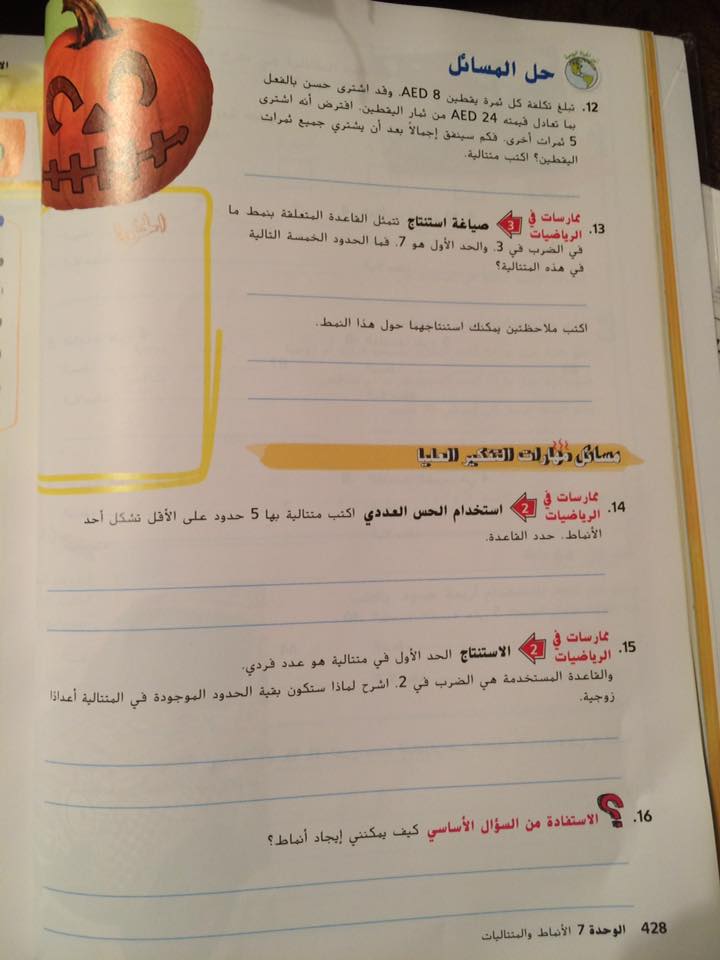 حل المسائل
12. تبلغ تكلفة كل ثمرة يقطين AED 8. وقد اشترى حسن بالفعل
بما تعادل قيمته AED 24 من ثمار اليقطين. افترض أنه اشترى
5 ثمرات أخرى. فكم سينفق إجمالاً بعد أن يشتري جميع ثمرات
اليقطين؟ اكتب متتالية.
13. ممارسات في الرياضيات 3 صياغة استنتاج تتمثل القاعدة المتعلقة بنمط ما
في الضرب في 3. والحد الأول هو 7. فما الحدود الخمسة التالية
في هذه المتتالية؟
اكتب ملاحظتين يمكنك استنتاجهما حول هذا النمط.
مسائل مهارات التفكير العليا
14. ممارسات في الرياضيات 2 استخدام الحس العددي اكتب متتالية بها 5 حدود على الأقل تشكل أحد
الأنماط. حدد القاعدة.
15. ممارسات في الرياضيات 2 الاستنتاج الحد الأول في متتالية هو عدد فردي.
والقاعدة المستخدمة هي الضرب في 2. اشرح لماذا ستكون بقية الحدود الموجودة في المتتالية أعدادًا
زوجية.
16. الاستفادة من السؤال الأساسي كيف يمكنني إيجاد أنماط؟
428 الوحدة 7 الأنماط والمتتاليات